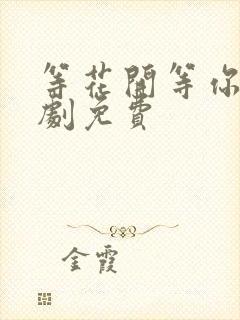 等花開等你
劇免費
金霞